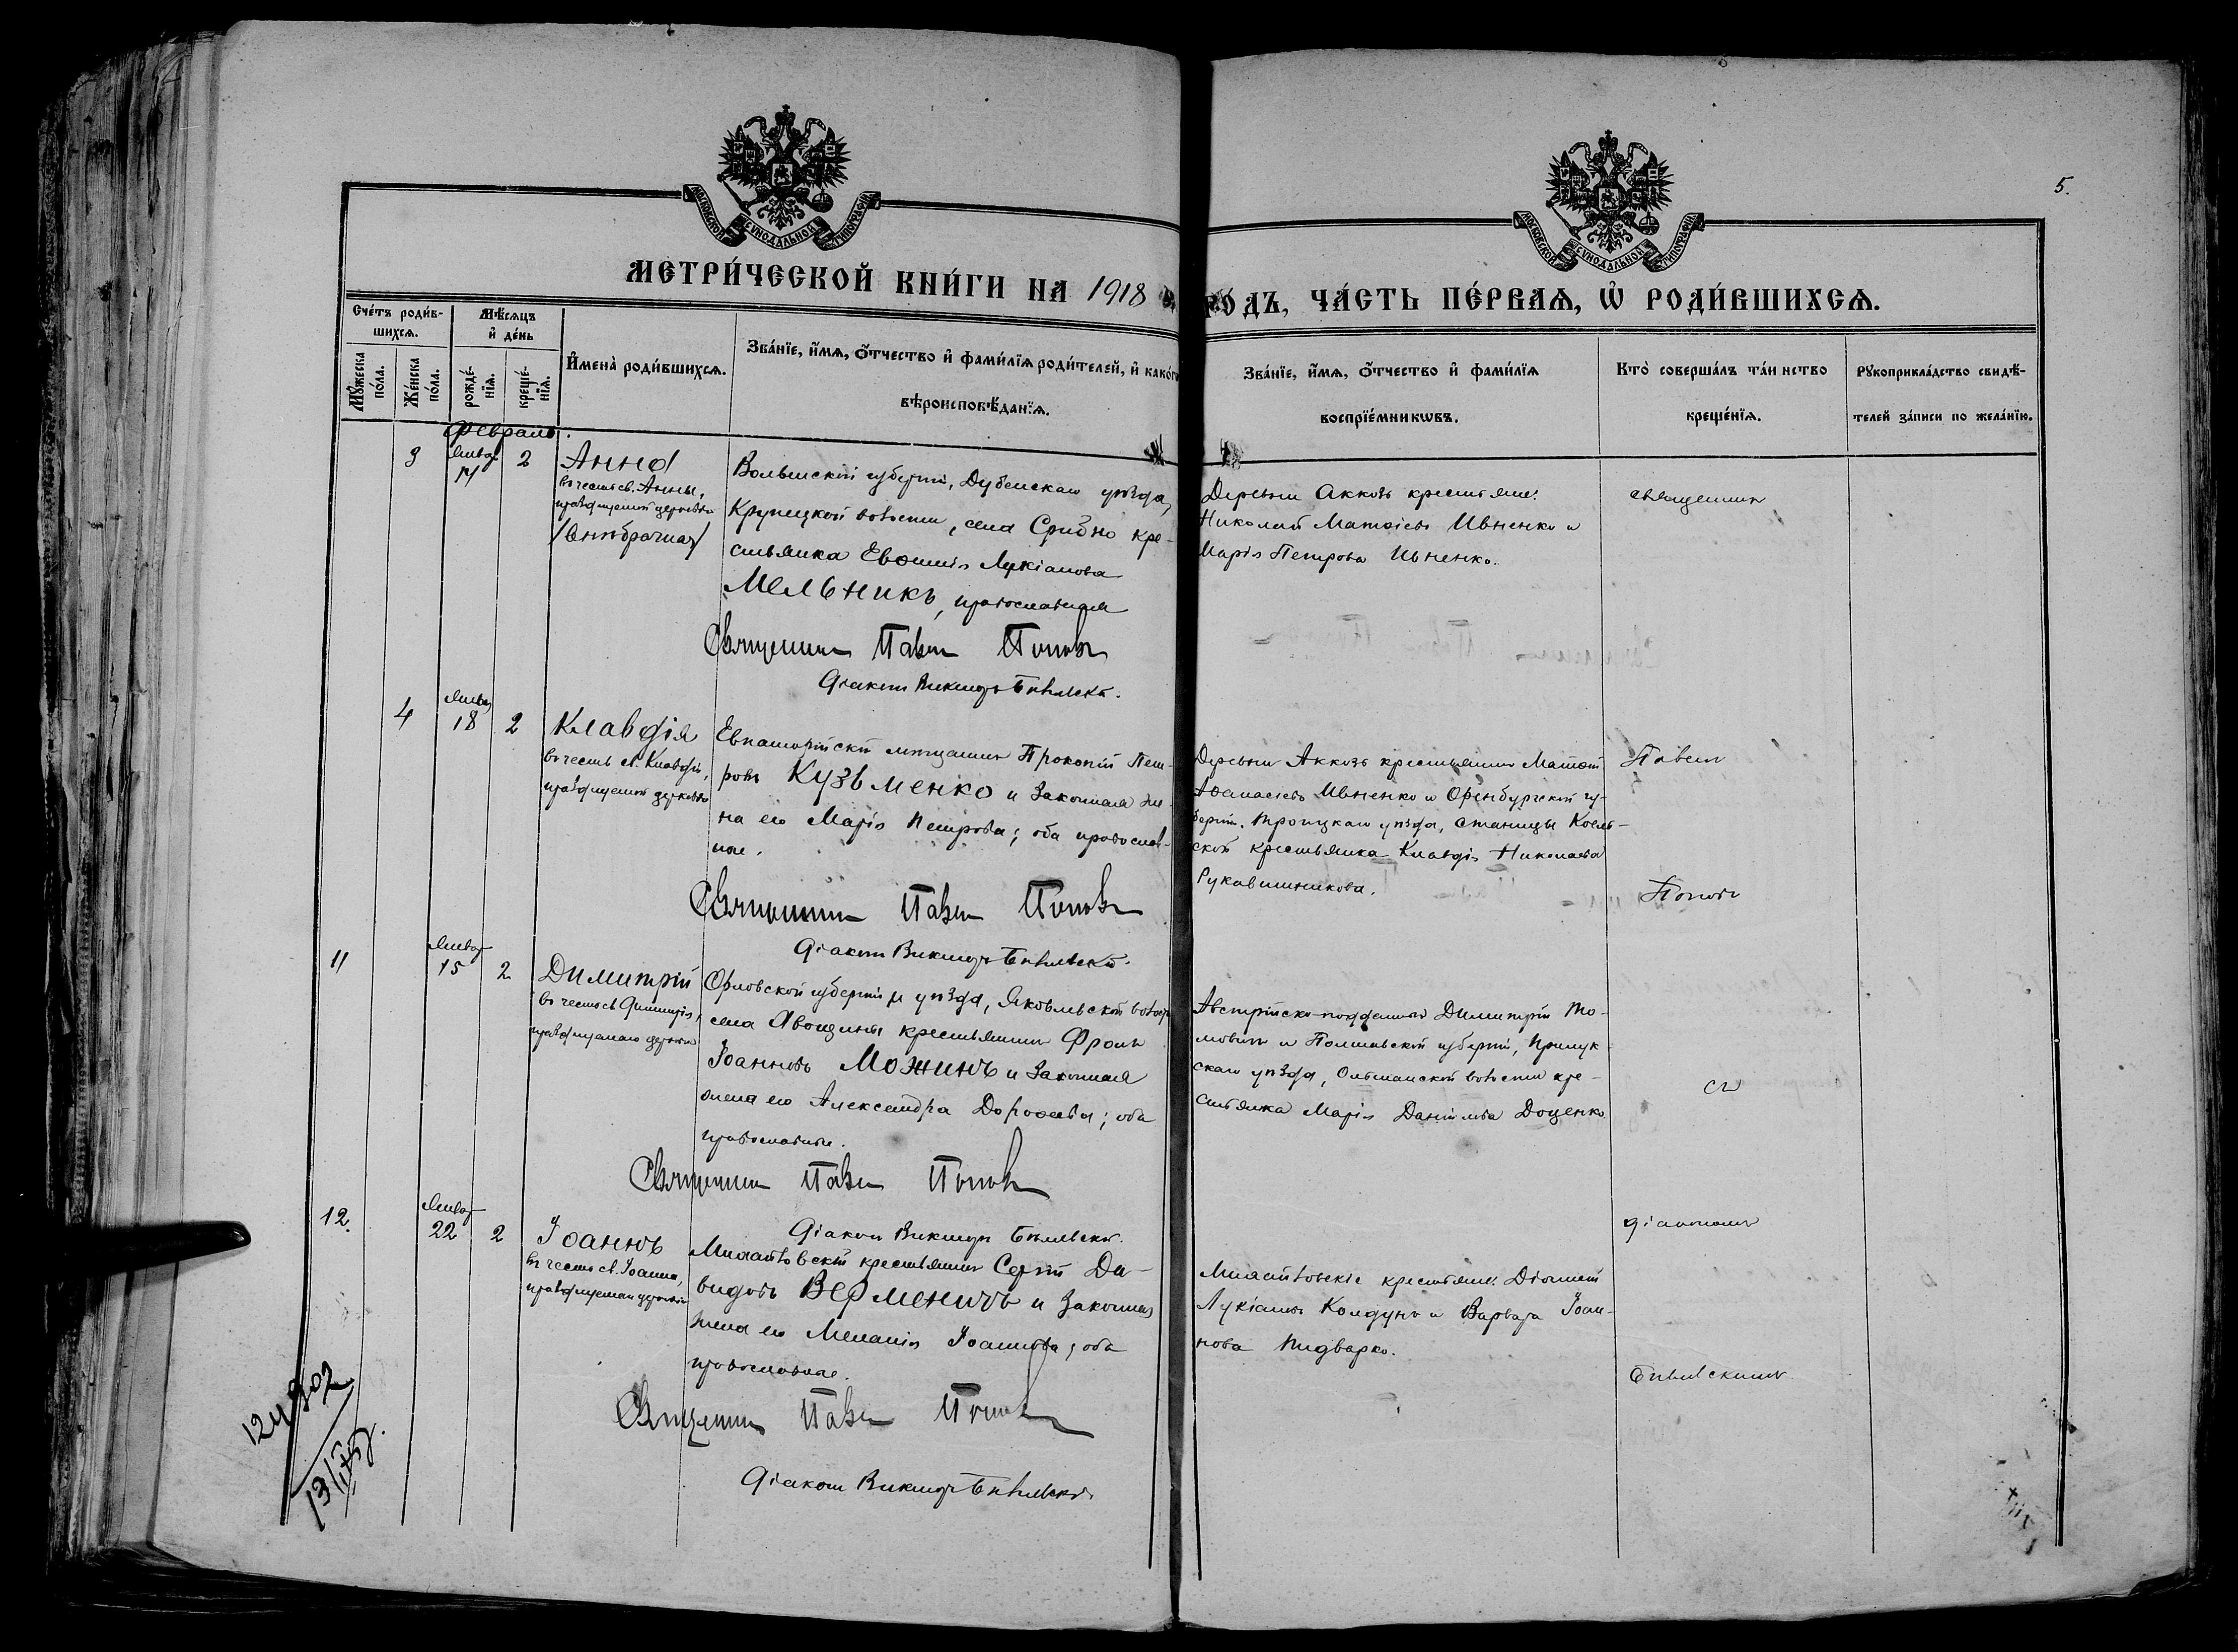 МОСКОВСКОЙ СѴНОДАЛЬНОЙ ТИПОГРАФІИ
МОСКОВСКОЙ СѴНОДАЛЬНОЙ ТИПОГРАФІИ
5.
МЕТРИ́ЧЕСКОЙ КНИ́ГИ НА 1918 ГО́ДЪ, ЧА́СТЬ ПЕ́РВАѦ, Ѡ҆ РОДИ́ВШИХСѦ.
Сче́тъ роди́в-
шихсѧ.
Мѣ́сѧцъ
и҆ де́нь
Мꙋ́жеска
по́ла.
Же́нска
по́ла.
рожде́-
нїѧ.
креще́-
нїѧ.
И҆мена̀ роди́вшихсѧ.
Зва́нїе, и҆́мѧ, ѻ҆́тчество и҆ фами́лїѧ роди́телей, и҆ како́гѡ
вѣроисповѣ́данїѧ.
Зва́нїе, и҆́мѧ, ѻ҆́тчество и҆ фами́лїѧ
воспрїе́мникѡвъ.
Кто̀ соверша́лъ та́инство
креще́нїѧ.
Рꙋкоприкла́дство свидѣ́-
телей за́писи по жела́нїю.
Февраль.
3
Январ
14
2
Анна
въ честь св. Анны,
празднуемой церковью
/внѣбрачная/
Волынской губерніи, Дубенскаго уѣзда,
Крупецкой волости, села Срибно кре-
стьянка Евфимія Лукіанова
Мельникъ, православная
Священникъ Павелъ Поповъ
Діаконъ Викторъ Бѣлевскій.
Деревни Аккозъ крестьяне:
Николай Матѳіевъ Ивненко и
Марія Петрова Ивненко.
священник
4
Январ
18
2
Клавдія
въ честь св. Клавдіи,
празднуемой церковью
Евпаторійскій мѣщанинъ Прокопій Пет-
ровъ Кузьменко и законная же-
на его Марія Петрова; оба православ-
ные.
Священникъ Павелъ Поповъ
Діаконъ Викторъ Бѣлевскій.
Деревни Аккозъ крестьянинъ Матѳій
Аѳанасіевъ Ивненко и Оренбургской гу-
берніи, Троицкаго уѣзда, станицы Коель-
ской крестьянка Клавдія Николаева
Рукавишникова.
Павелъ
Поповъ
11
Январ
15
2
Димитрій
въ честь св. Димитрія,
празднуемаго церковью
Орловской губерніи и уѣзда, Яковлевской волости
села крестьянинъ Фролъ
Іоанновъ Можинъ и законная
жена его Александра Дороѳеева; оба
православные.
Священникъ Павелъ Поповъ
Діаконъ Викторъ Бѣлевскій.
Австрійско-подданный Димитрій То-
мовичъ и Полтавской губерніи, Прилук-
скаго уѣзда, Ольшанской волости кре-
стьянка Марія Даніилова Доценко
съ
12.
Январ
22
2
Іоаннъ
въ честь св. Іоанна,
празднуемаго церковью
крестьянинъ Сергій Да-
видовъ Верменичъ и законная
жена его Меланія Іоаннова; оба
православные.
Священникъ Павелъ Поповъ
Діаконъ Викторъ Бѣлевскій.
крестьяне: Діомидъ
Лукіановъ Колдунъ и Варвара Іоан-
нова Пидварко.
діакономъ
Бѣлевскимъ